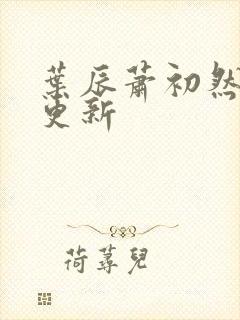 葉辰蕭初然
更新
荷蕁兒